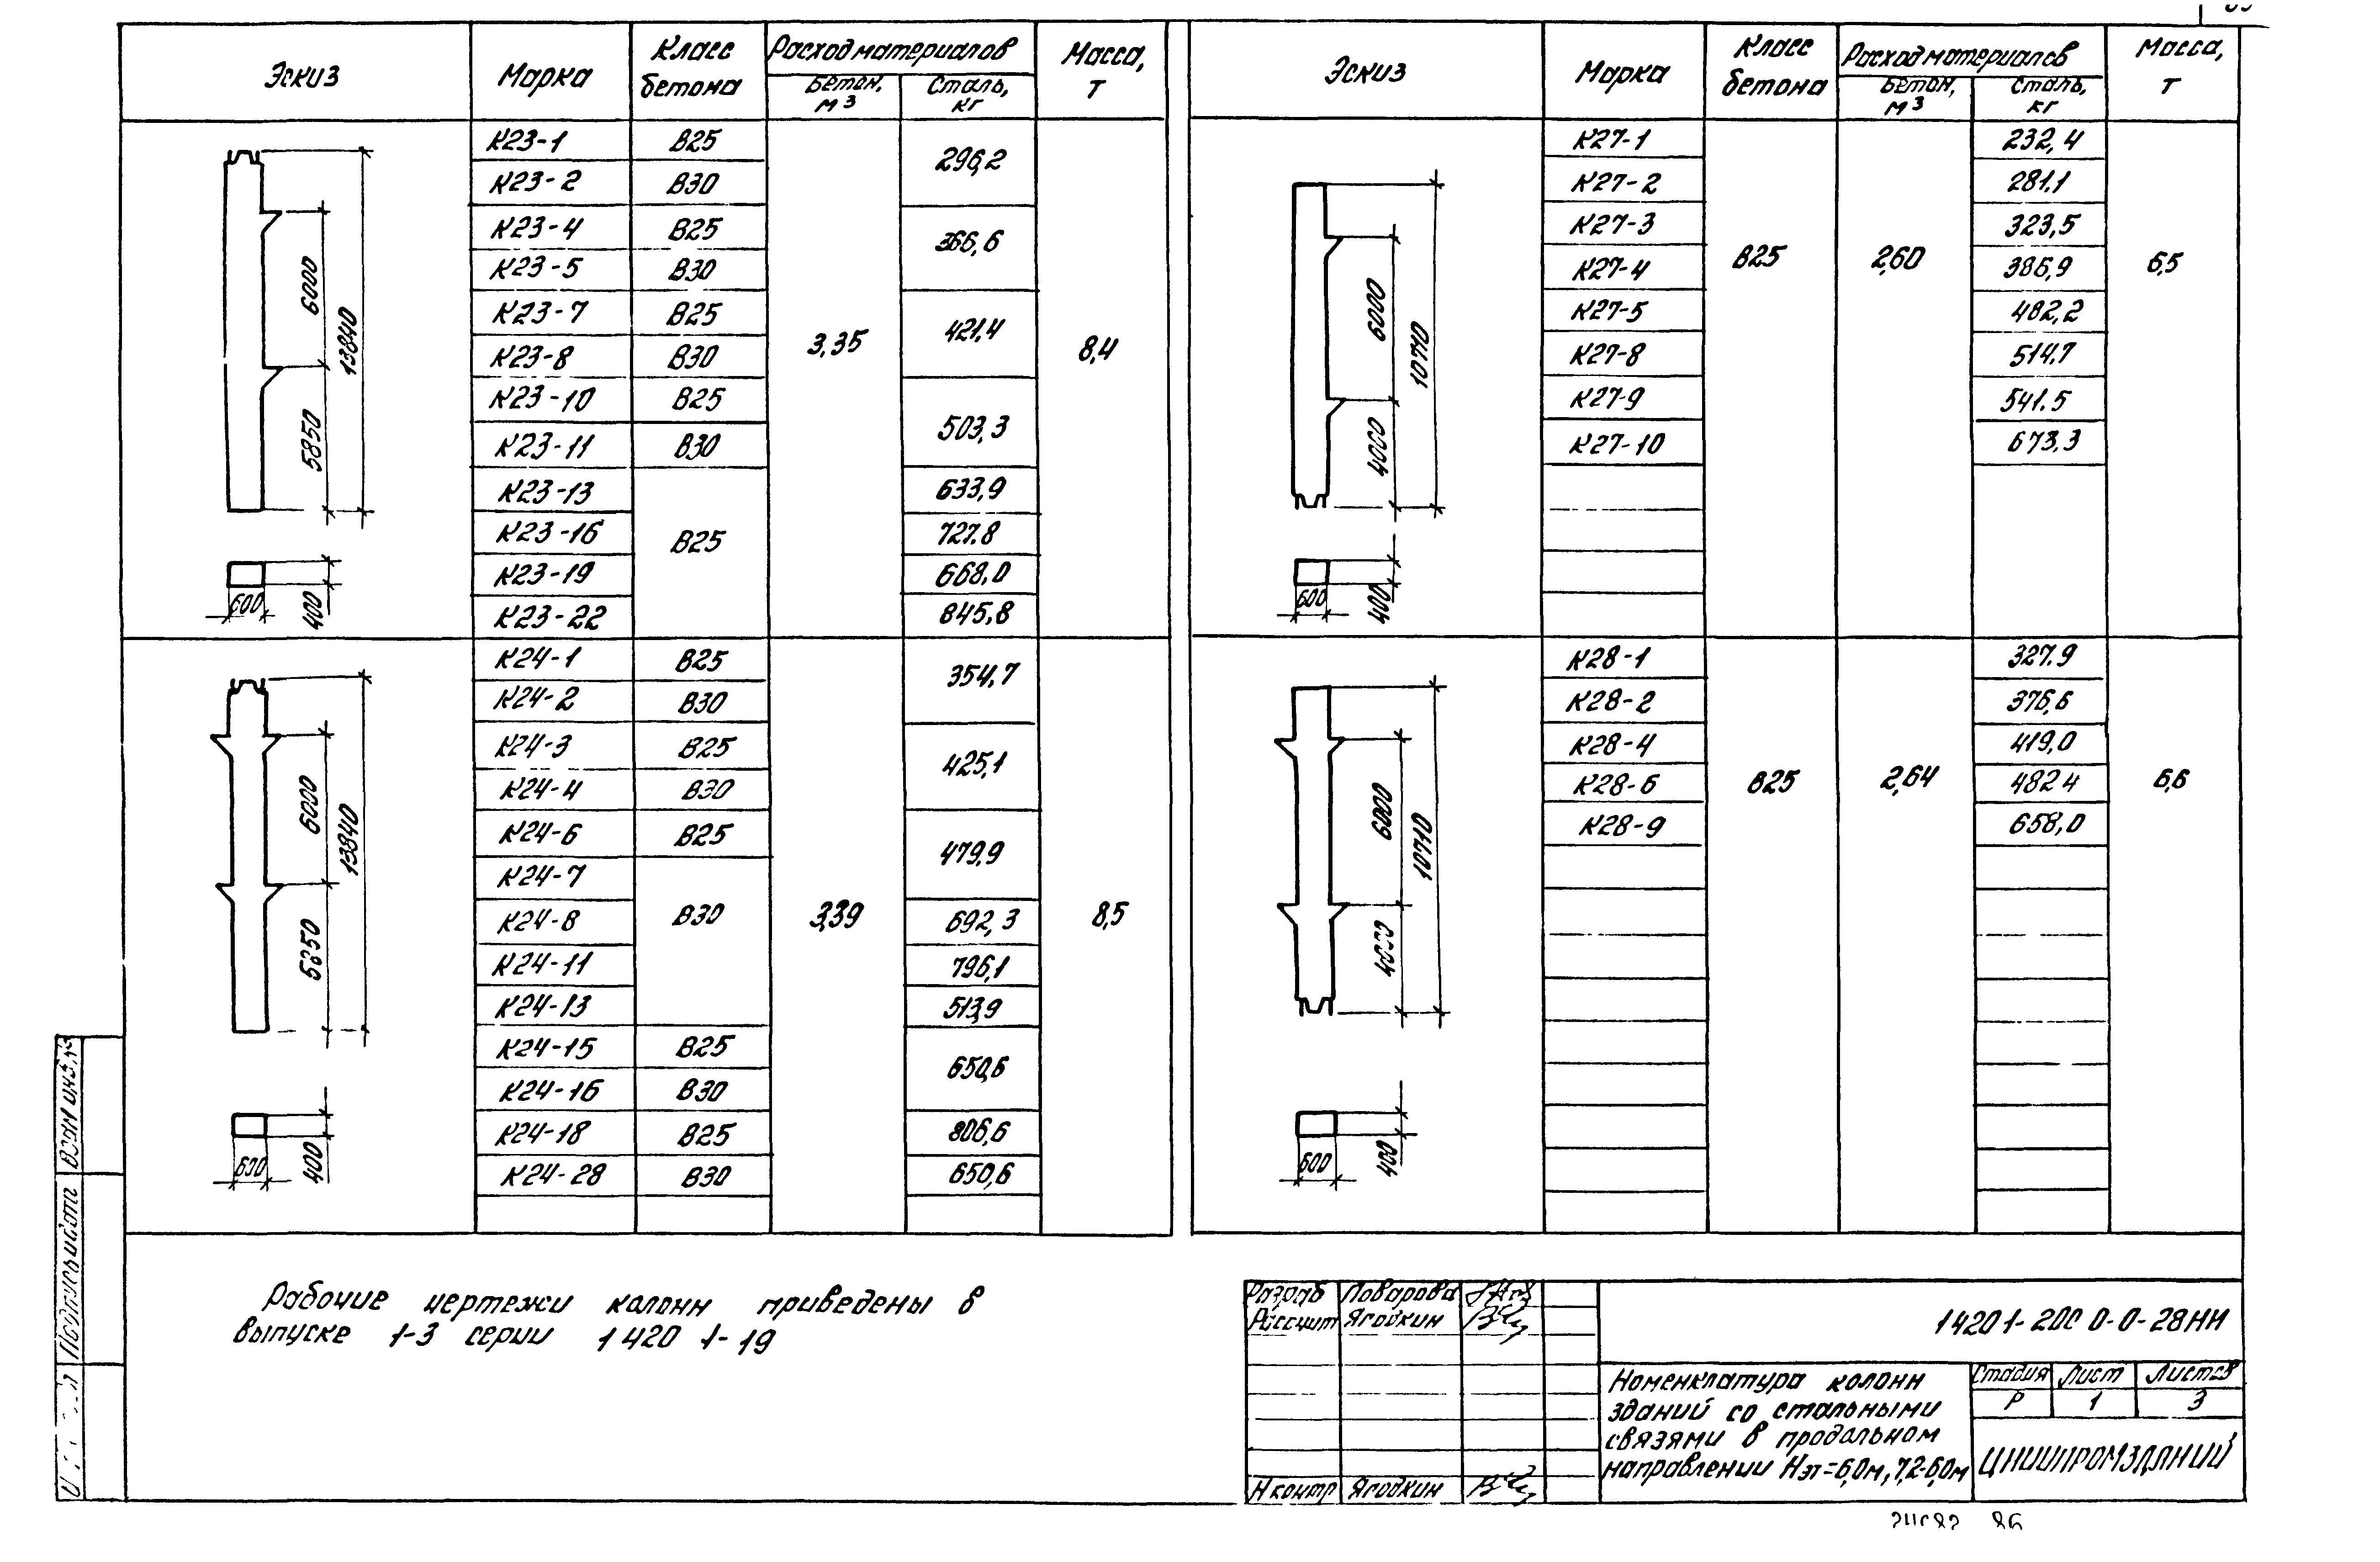 Эскиз Марка Класс бетона Расход материалов Масса, т
Бетон, м3 Сталь, кг
К23-1 В25 296,2
К23-2 В30
К23-4 В25 366,6
К23-5 В30
К23-7 В25 421,4
К23-8 В30 3,35 8,4
К23-10 В25 503,3
К23-11 В30
К23-13 633,9
К23-16 В25 727.8
К23-19 668,0
К23-22 845,8
6000
13840
5850
600
400
К24-1 В25 354,7
К24-2 В30
К24-3 В25 425,1
К24-4 В30
К24-6 В25 479,9
К24-7
К24-8 В30 3,39 692,3 8,5
К24-11 796,1
К24-13 513,9
К24-15 В25 650,6
К24-16 В30
К24-18 В25 806,6
К24-28 В30 650,6
6000
13840
5850
600
400
Эскиз Марка Класс бетона Расход материалов Масса, т
Бетон, м3 Сталь, кг
К27-1 232,4
К27-2 281.1
К27-3 323,5
К27-4 В25 2,60 386,9 6,5
К27-5 482,2
К27-8 514.7
К27-9 541.5
К27-10 673,3
6000
10710
4000
600
400
К28-1 327.9
К28-2 376,6
К28-4 419,0
К28-6 В25 2,64 482 4 6,6
К28-9 658,0
6000
10710
4000
600
400
Рабочие чертежи колонн приведены в
выпуске 1-3 серии 1 420 1-19
Разраб Поварова
Рассчит Ягодкин
Н контр Ягодкин
1 420 1-20С 0-0-28НИ
Номенклатура колонн
зданий со стальными
связями в продольном
направлении Нэт=6,0м, 7,2-6,0м
Стадия Лист Листов
Р 1 3
ЦНИИПРОМЗДАНИЙ
Подпись и дата
Взам инв.№